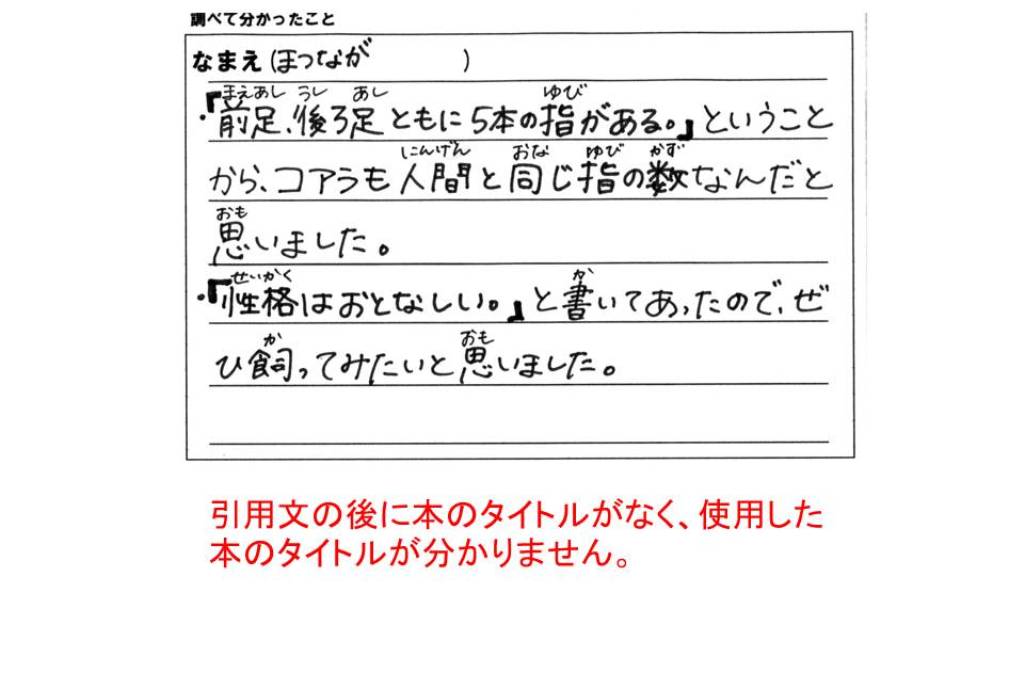 調べて分かったこと
なまえ(ほつなが )
まえあし うし あし ゆび
・『前足、後ろ足ともに5本の指がある。』ということ
にんげん おな ゆび かず
から、コアラも人間と同じ指の数なんだと
おも
思いました。
せいかく か
・『性格はおとなしい。』と書いてあったので、ぜ
か おも
ひ飼ってみたいと思いました。
引用文の後に本のタイトルがなく、使用した
本のタイトルが分かりません。